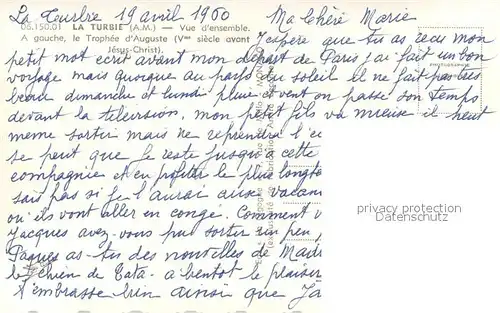 La Turbie 19 avril 1960
Ma Chère Marie
06.150.01 LA TURBIE (A.M.) — Vue d'ensemble.
A gauche, le Trophée d'Auguste (Vme siècle avant
Jésus-Christ).
J'espère que tu as reçu mon
petit mot écrit avant mon départ de Paris j'ai fait un bon
voyage mais quoique au pays du soleil il ne fait pas très
beau dimanche et lundi pluie et vent on passe son temps
devant la télévision, mon petit fils va mieux il peut
meme sortir mais ne reprendra l'
se peut que je reste jusqu'a cette
compagnie et en profiter le plus longt
sais pas si je l'aurai aux vacan
ou ils vont aller en congé. Comment v
Jacques avez-vous pu sortir un peu
Paques as-tu des nouvelles de
le chien de Tata - a bientot le plaisir
t'embrasse bien ainsi que Ja
privacy protection
Datenschutz